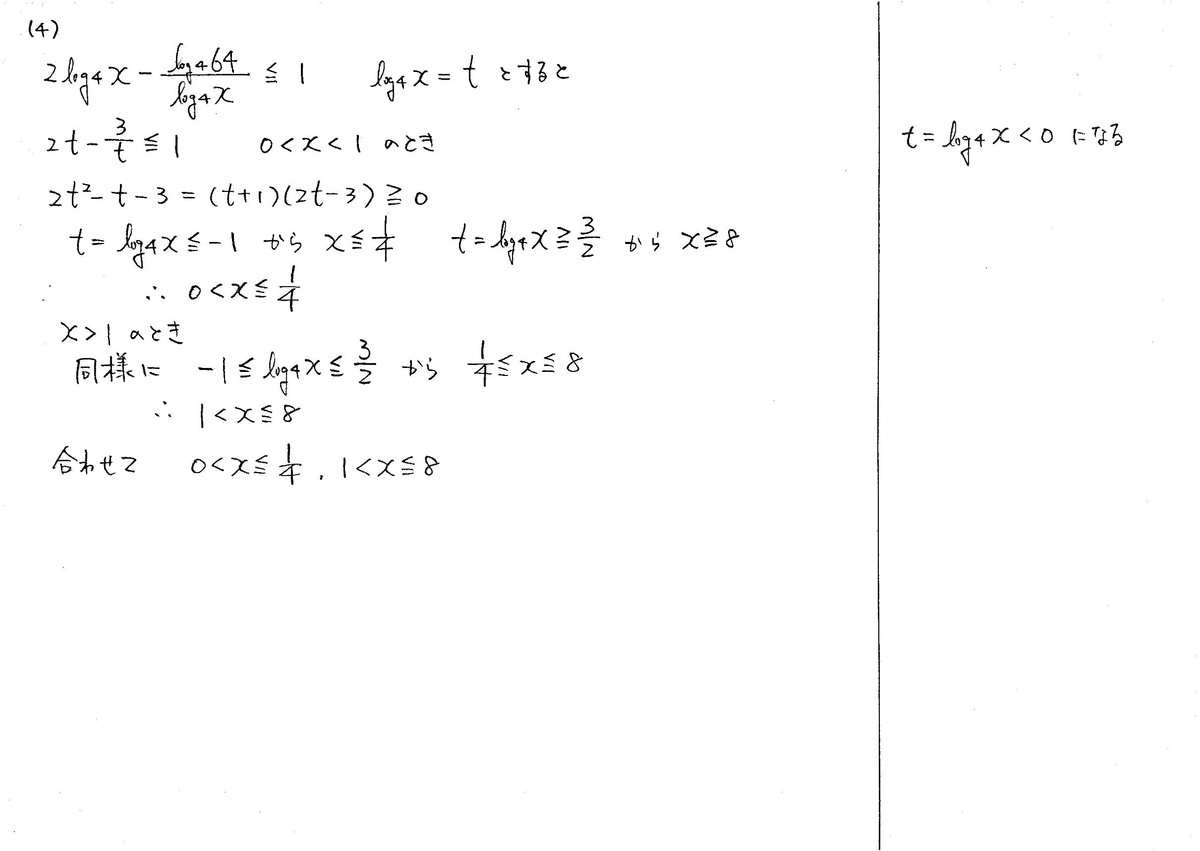 (4)
2log₄x - log₄64/log₄x ≦ 1 log₄x = t とすると
2t - 3/t ≦ 1 0<x<1 のとき t = log₄x < 0 になる
2t² - t - 3 = (t+1)(2t-3) ≧ 0
t = log₄x ≦ -1 から x ≦ 1/4 t = log₄x ≧ 3/2 から x ≧ 8
∴ 0<x≦1/4
x>1 のとき
同様に -1 ≦ log₄x ≦ 3/2 から 1/4 ≦ x ≦ 8
∴ 1<x≦8
合わせて 0<x≦1/4, 1<x≦8